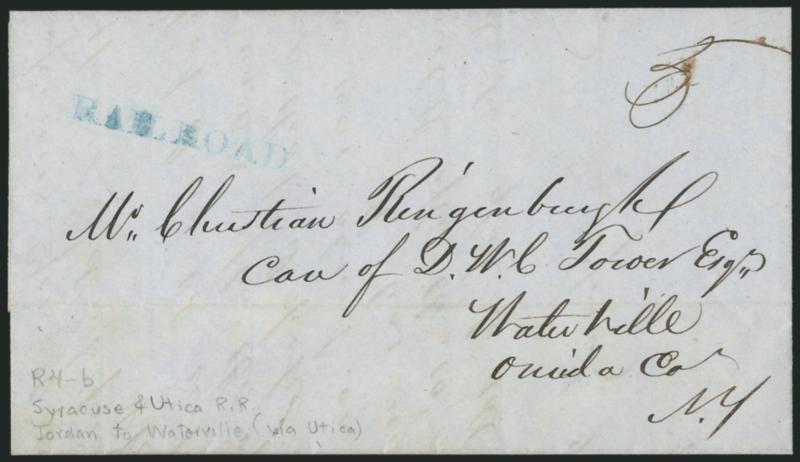 5
RAILROAD
Mr. Christian Ringenburgh
Care of D.W.C Tower Esqr
Waterville
Oneida Co
N.Y
R4-b
Syracuse & Utica R.R.
Jordan to Waterville (via Utica)